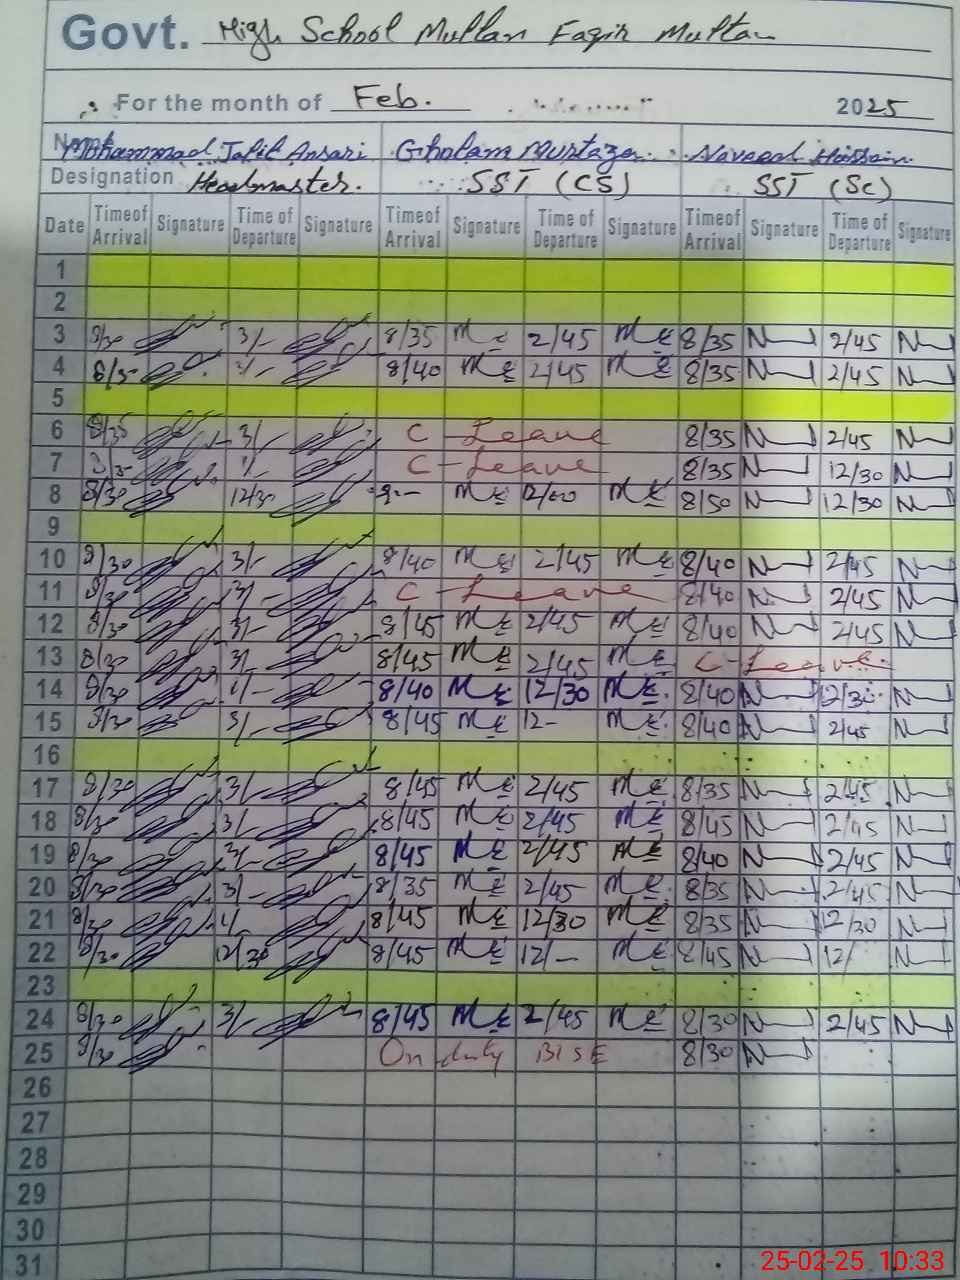 Govt. High School Multan
For the month of Feb. 2025
Name Mohammad Jalil Ansari Gholam Murtaza Naveed Hussain
Designation Headmaster. SST (CS) SST (Sc)
Date Time of Arrival Signature Time of Departure Signature Time of Arrival Signature Time of Departure Signature Time of Arrival Signature Time of Departure Signature
1
2
3 8/30 3/- 8/35 2/45 8/35 2/45
4 8/40 2/45 8/35 2/45
5
6 3/ C-Leave 8/35 2/45
7 C-Leave 8/35 12/30
8 8/30 12/30 9-- 12/00 8/50 12/30
9
10 8/30 3/- 8/40 2/45 8/40 2/45
11 8/30 C-Leave 8/40 2/45
12 8/30 3/- 8/45 2/45 8/40 2/45
13 8/30 3/- 8/45 2/45 C-Leave
14 8/30 1/- 8/40 12/30 8/40 12/30
15 8/30 8/45 12- 8/40 2/45
16
17 8/30 3/- 8/45 2/45 8/35 2/45
18 3/- 8/45 2/45 8/45 2/45
19 8/30 8/45 2/45 8/40 2/45
20 8/30 3/- 8/35 2/45 8/35 2/45
21 8/30 1/ 8/45 12/30 8/35 12/30
22 8/30 12/30 8/45 12/- 8/45 12/
23
24 8/30 3/- 8/45 2/45 8/30 2/45
25 8/30 On duty BISE 8/30
26
27
28
29
30
31
25-02-25 10:33